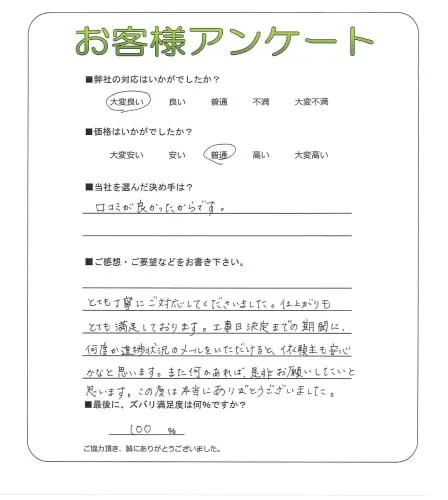 お客様アンケート
■弊社の対応はいかがでしたか?
大変良い 良い 普通 不満 大変不満
■価格はいかがでしたか?
大変安い 安い 普通 高い 大変高い
■当社を選んだ決め手は?
口コミが良かったからです。
■ご感想・ご要望などをお書き下さい。
とても丁寧にご対応してくださいました。仕上がりも
とても満足しております。工事日決定までの期間に、
何度か進捗状況のメールをいただけると、依頼主も安心
かなと思います。また何かあれば、是非お願いしたいと
思います。この度は本当にありがとうございました。
■最後に、ズバリ満足度は何%ですか?
100 %
ご協力頂き、誠にありがとうございました。